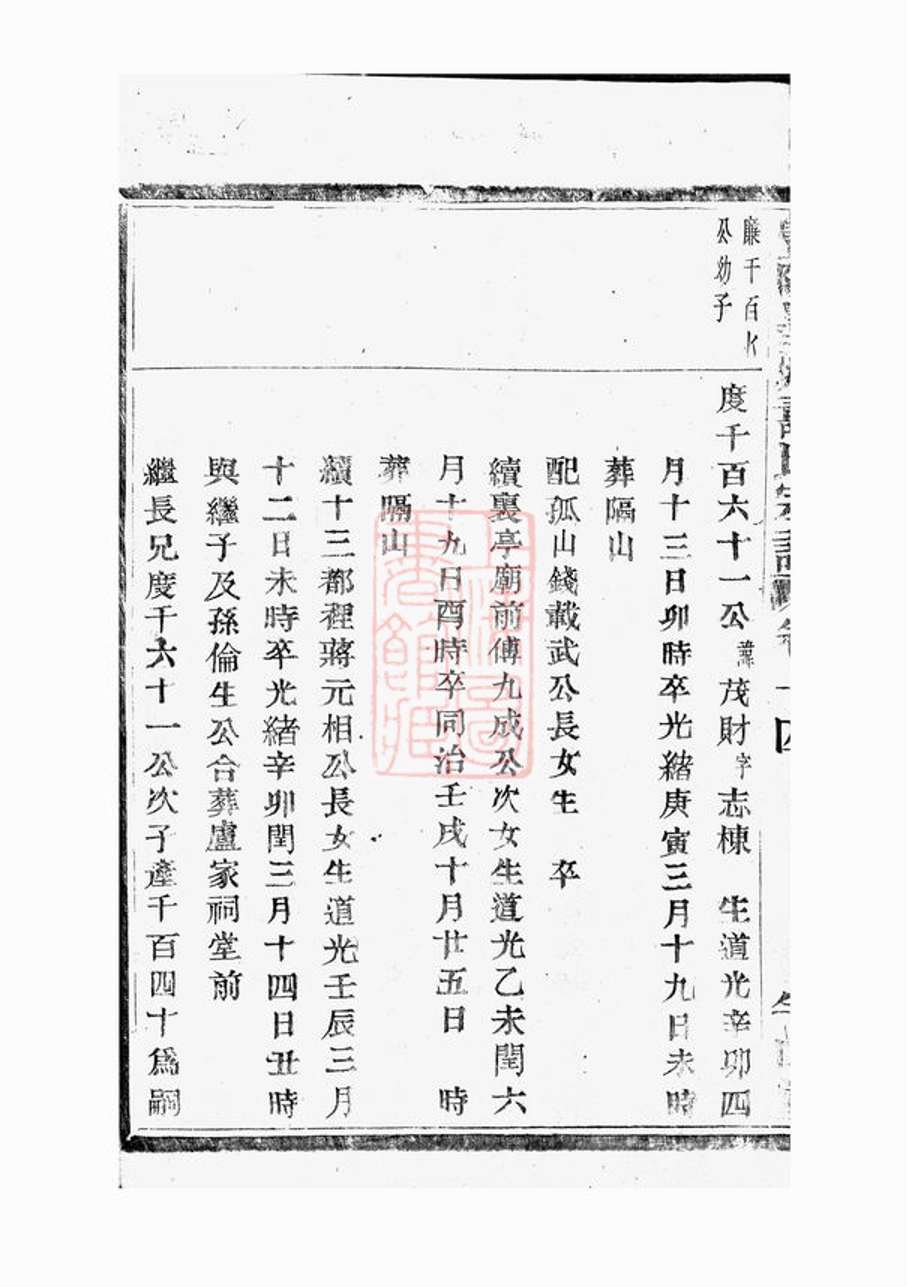 廉千百
公幼子
度千百六十一公諱茂財字志棟　生道光辛卯四
月十三日卯時卒光緒庚寅三月十九日未時
葬隔山
配孤山錢載武公長女生　卒
續裏亭廟前傅九成公次女生道光乙未閏六
月十九日酉時卒同治壬戌十月廿五日　時
葬隔山
續十三都裡蔣元相公長女生道光壬辰三月
十二日未時卒光緒辛卯閏三月十四日丑時
與繼子及孫倫生公合葬盧家祠堂前
繼長兄度千六十一公次子產千百四十爲嗣